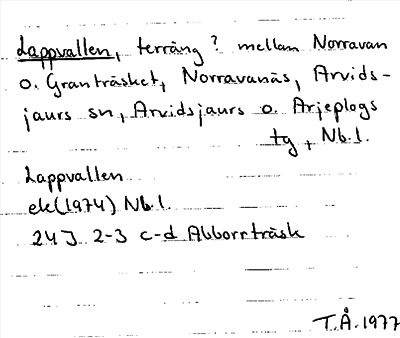 Lappvallen, terräng? mellan Norravan
o. Granträsket, Norravanäs, Arvids-
jaurs sn, Arvidsjaurs o. Arjeplogs
tg, Nb.l.
Lappvallen
ek(1974) Nb.l.
24J 2-3 c-d Abborrträsk
T.Å.1977